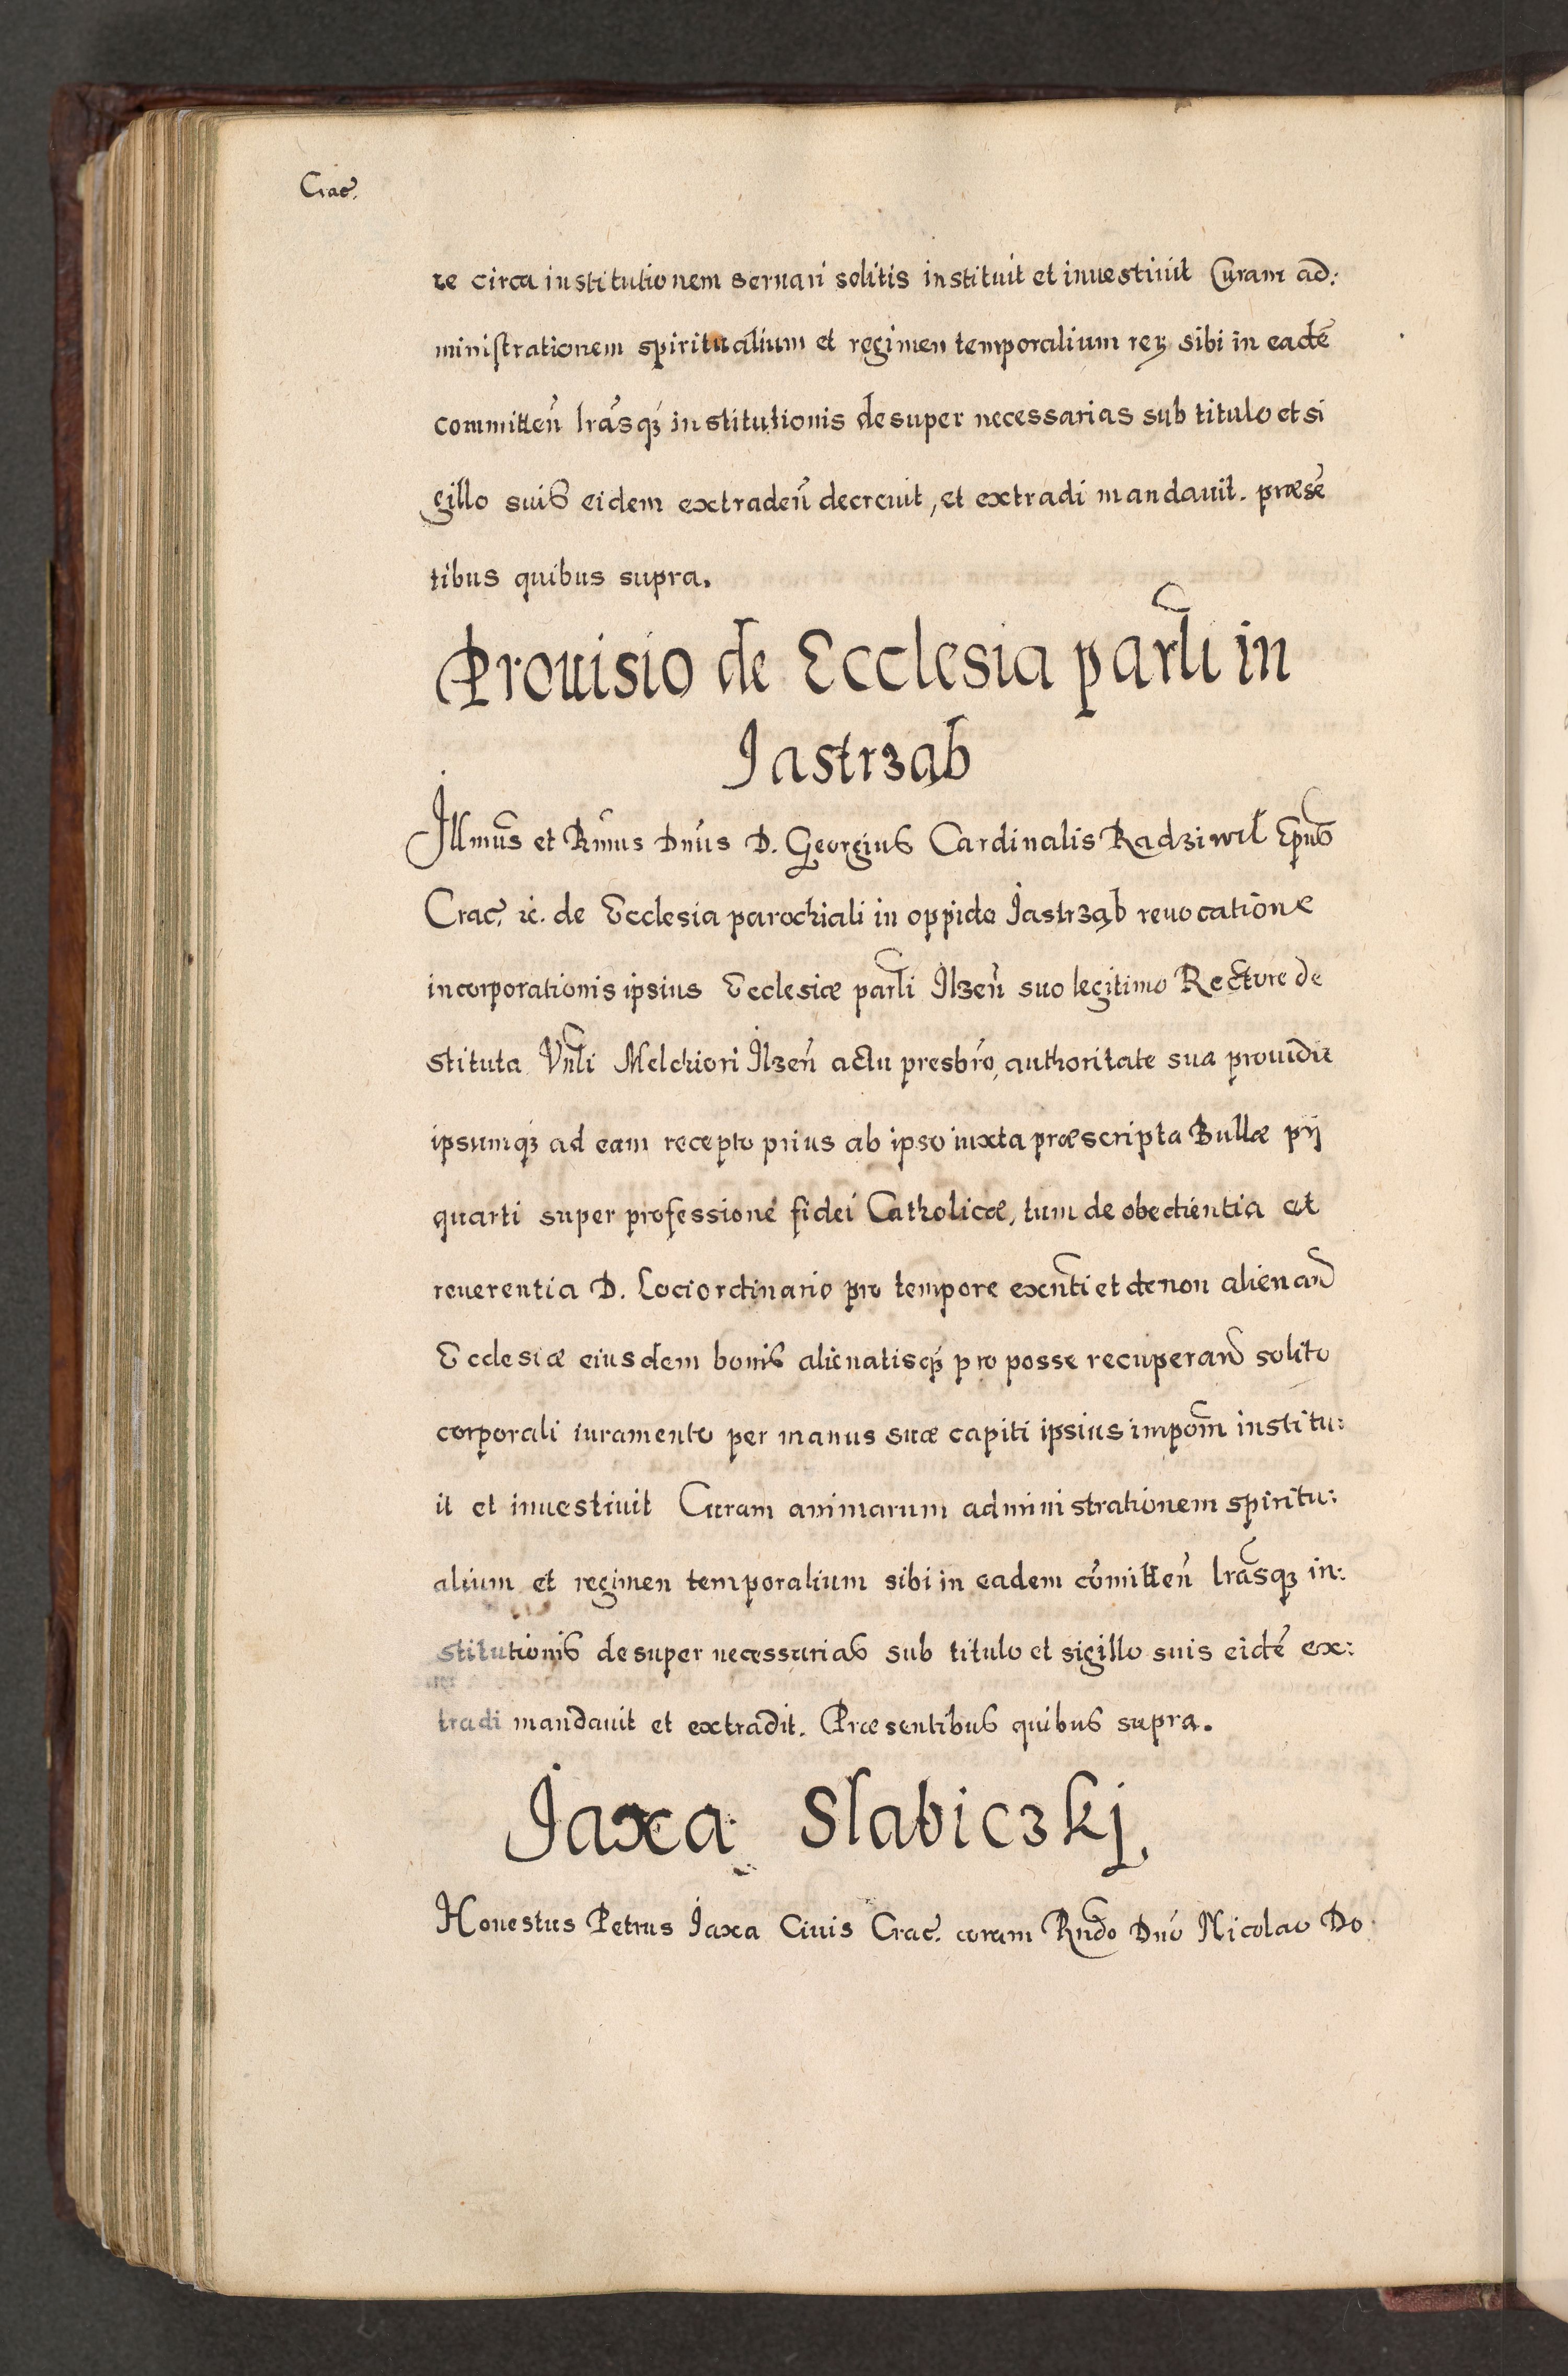 Crac̃.
re circa institutionem seruari solitis instituit et inuestiuit Curam ad:
ministrationem spiritualium et regimen temporalium reꝝ sibi in eadẽ
committeñ lrãsqꝫ institutionis desuper necessarias sub titulo et si
gillo suis eidem extradeñ decreuit, et extradi mandauit. præsẽ
tibus quibus supra.
Prouisio de Ecclesia parl̃i in
Jastrząb
Jllmũs et Rm̃us Dnũs D. Georgius Cardinalis Radziwił Epũs
Crac̃. ꝛc̃. de Ecclesia parochiali in oppido Jastrząb reuocatione
incorporationis ipsius Ecclesiæ parl̃i Jlzeñ suo legitimo Rectore de
stituta Vñli Melchiori Jlzeñ actu presbr̃o, authoritate sua prouidit
ipsumqꝫ ad eam recepto prius ab ipso iuxta præscripta Bullæ pij
quarti super professione fidei Catholicæ, tum de obedientia et
reuerentia D. Loci ordinario pro tempore exñti et de non alienañd
Ecclesiæ eiusdem bonis alienatisqꝫ pro posse recuperañd solito
corporali iuramento per manus suæ capiti ipsius impom̃ institu:
it et inuestiuit Curam animarum administrationem spiritu:
alium et regimen temporalium sibi in eadem com̃itteñ lrãsqꝫ in:
stitutionis desuper necessarias sub titulo et sigillo suis eidẽ ex:
tradi mandauit et extradit. Præsentibus quibus supra.
Jaxa Slabiczkj.
Honestus Petrus Jaxa Ciuis Crac̃. coram Rnd̃o Dnõ Nicolao Do